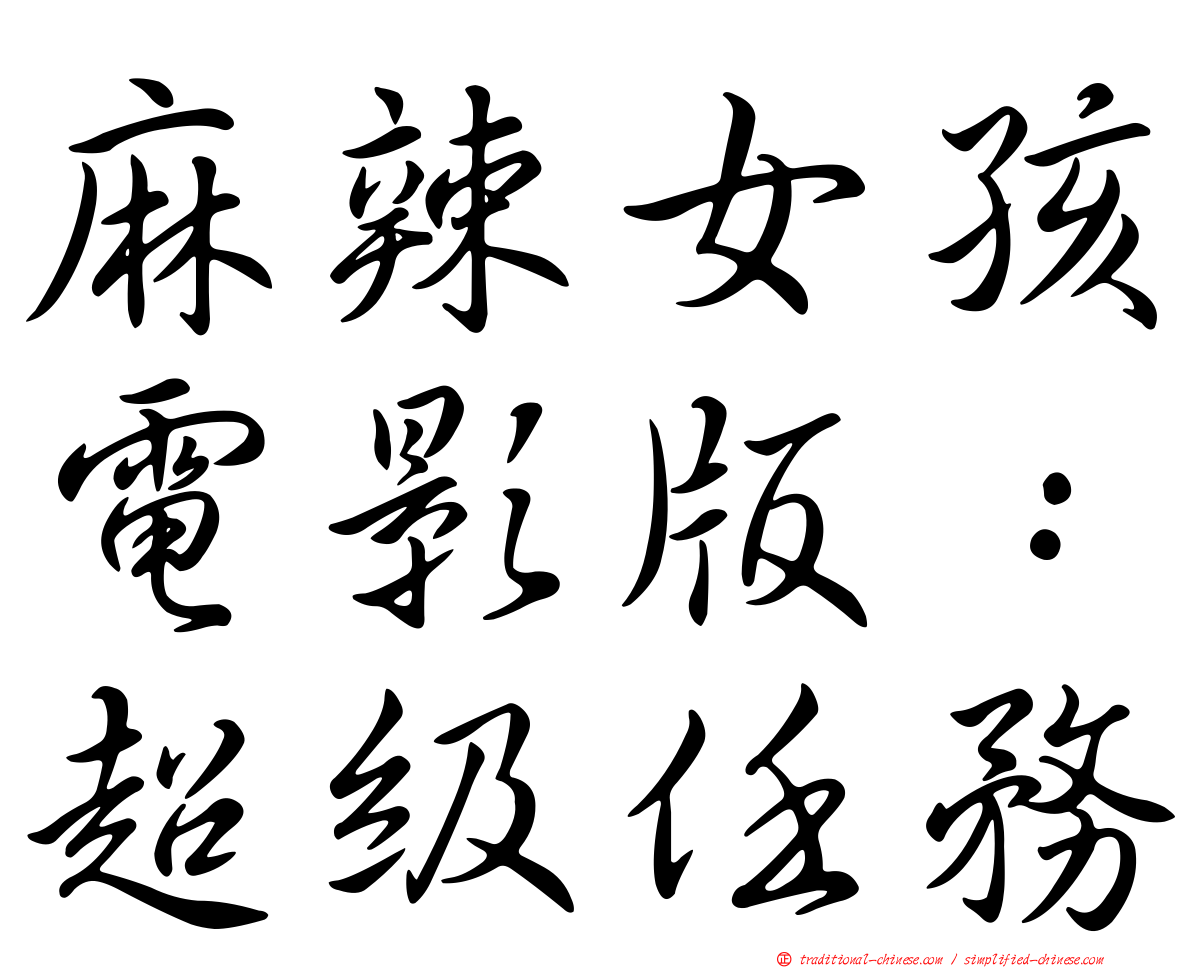 麻辣女孩
電影版：
超級任務
㊣ traditional-chinese.com / simplified-chinese.com